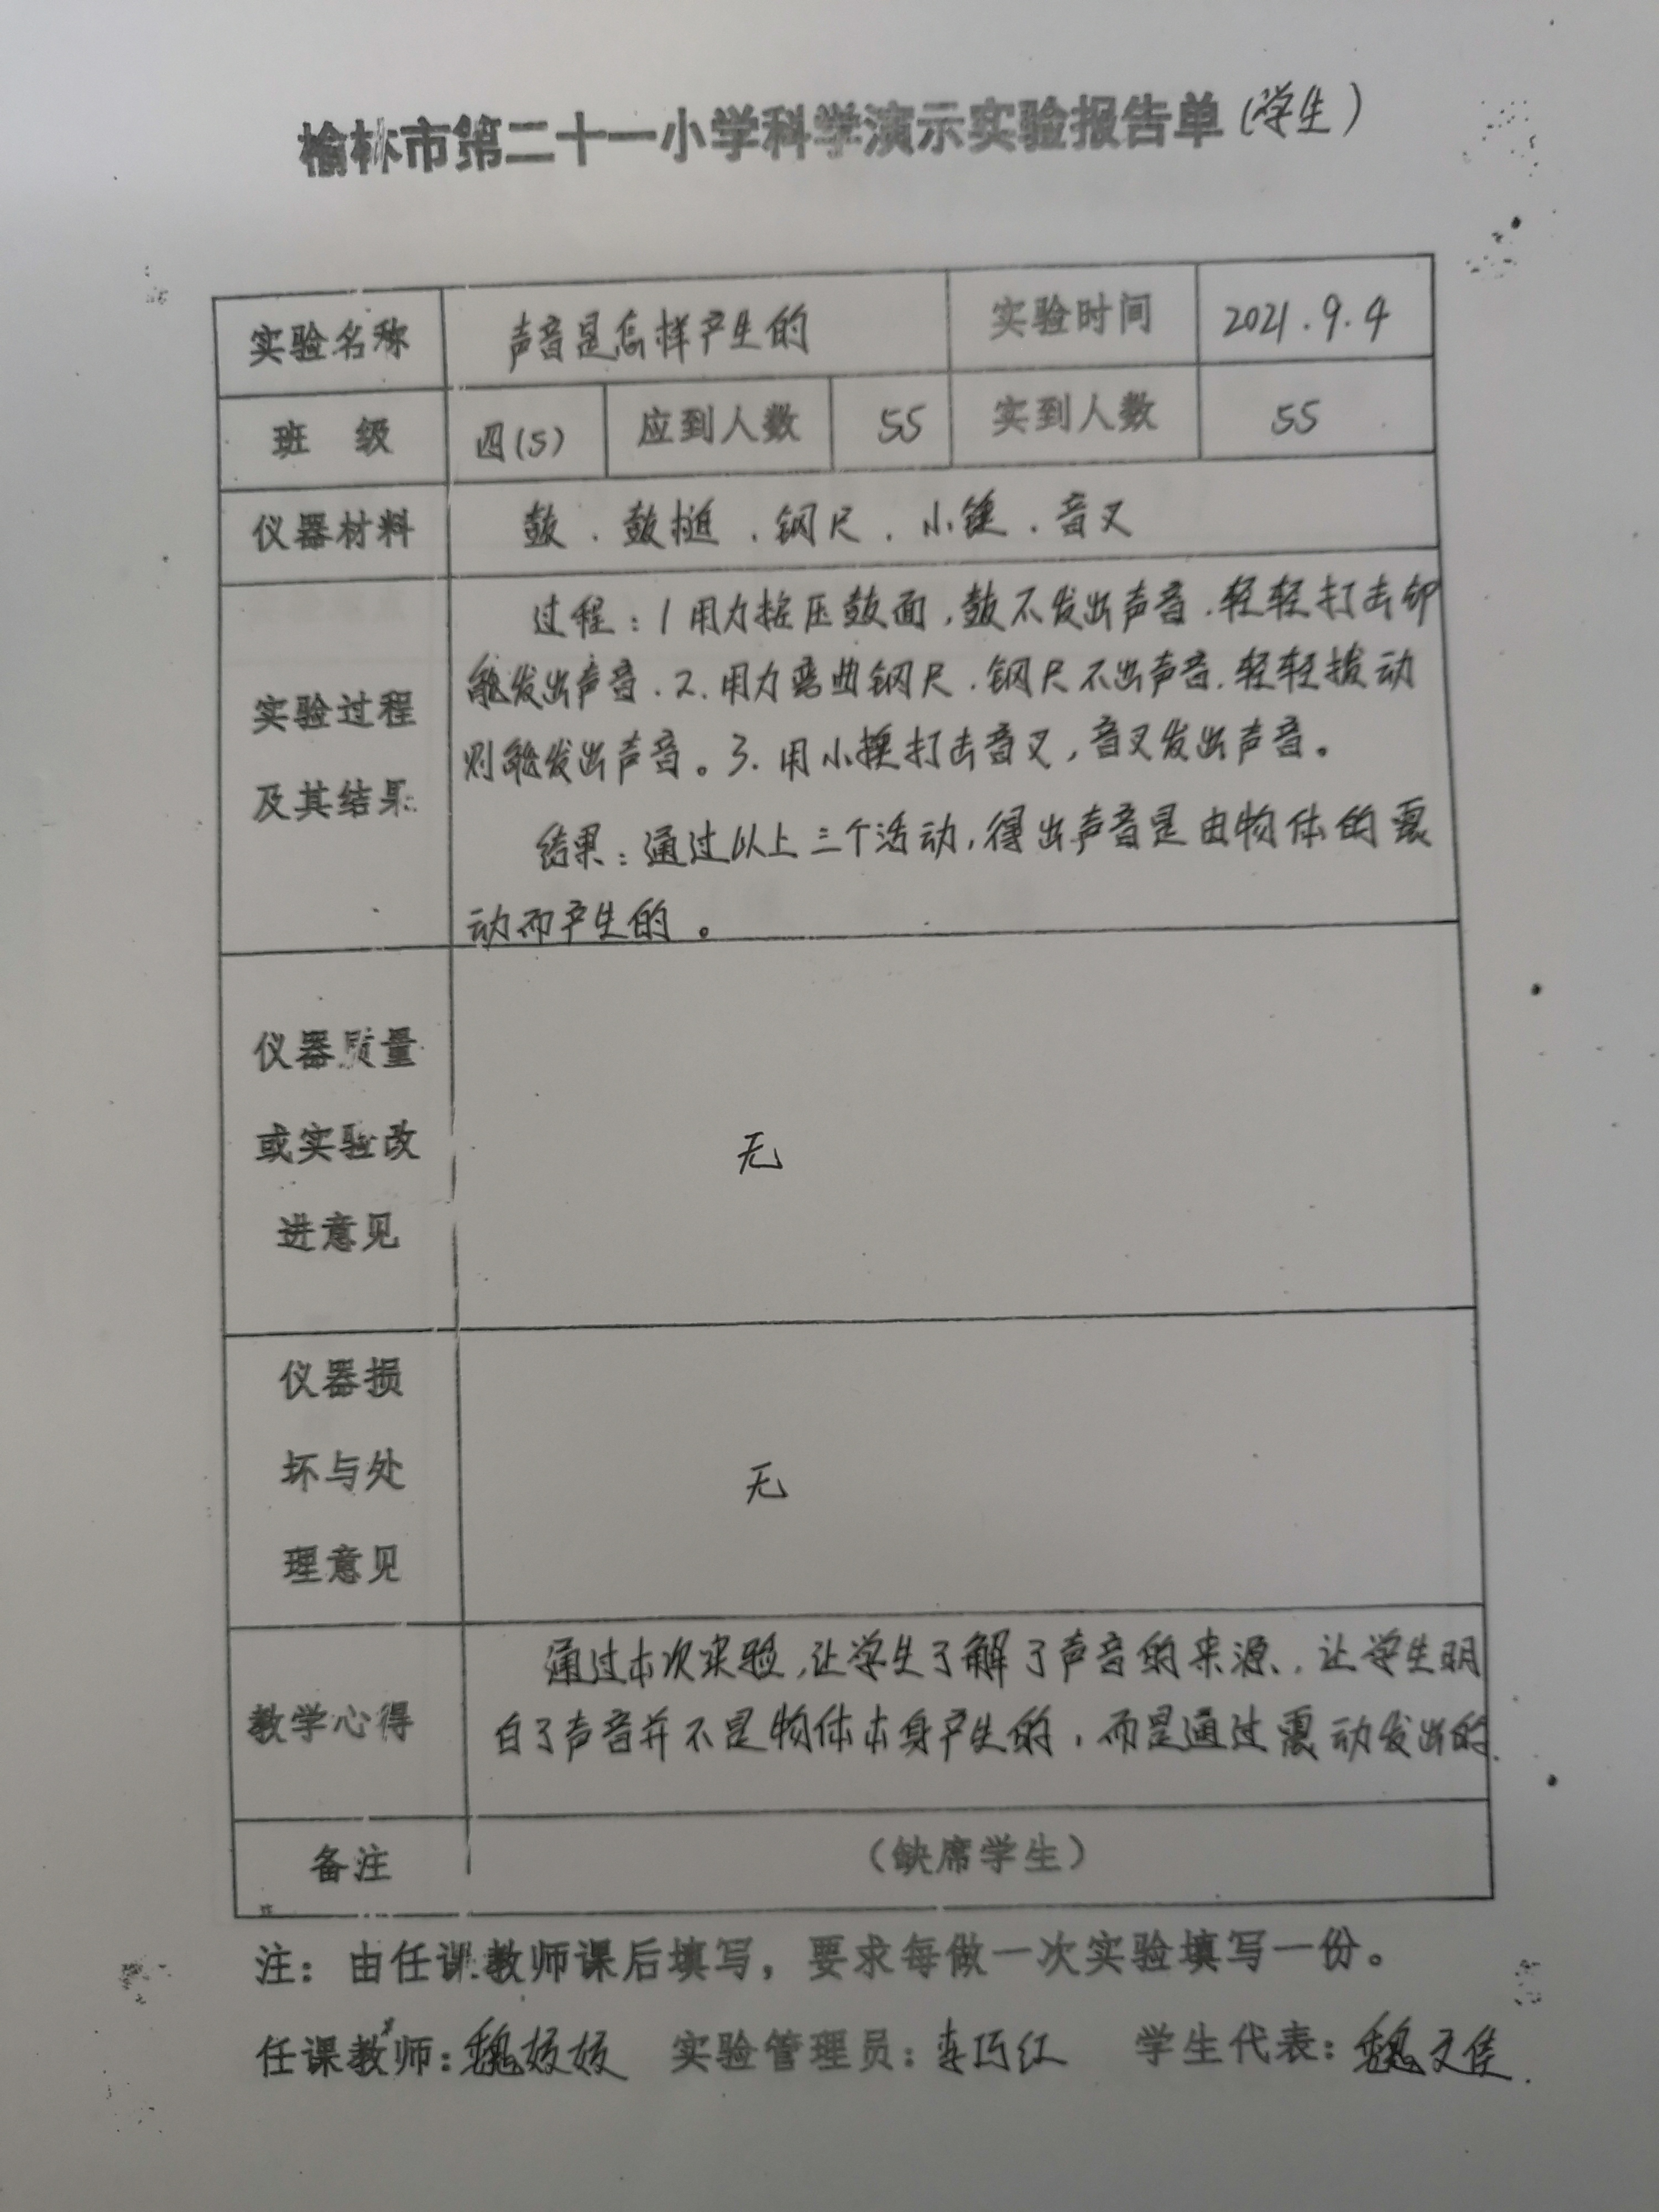 榆林市第二十一小学科学演示实验报告单(学生)
实验名称 声音是怎样产生的 实验时间 2021.9.4
班 级 四(5) 应到人数 55 实到人数 55
仪器材料 鼓.鼓槌.钢尺.小锤.音叉
过程:1用力按压鼓面,鼓不发出声音.轻轻打击却
能发出声音.2.用力弯曲钢尺.钢尺不出声音.轻轻拨动
实验过程
则能发出声音。3.用小打击音叉,音叉发出声音。
及其结果
结果:通过以上三个活动,得出声音是由物体的震
动而产生的。
仪器质量
或实验改
无
进意见
仪器损
坏与处
无
理意见
通过本次实验,让学生了解了声音的来源.让学生明
教学心得
白了声音并不是物体本身产生的,而是通过震动发出的.
备注 (缺席学生)
注:由任课教师课后填写,要求每做一次实验填写一份。
任课教师:魏 实验管理员:李巧红 学生代表:魏文佳.